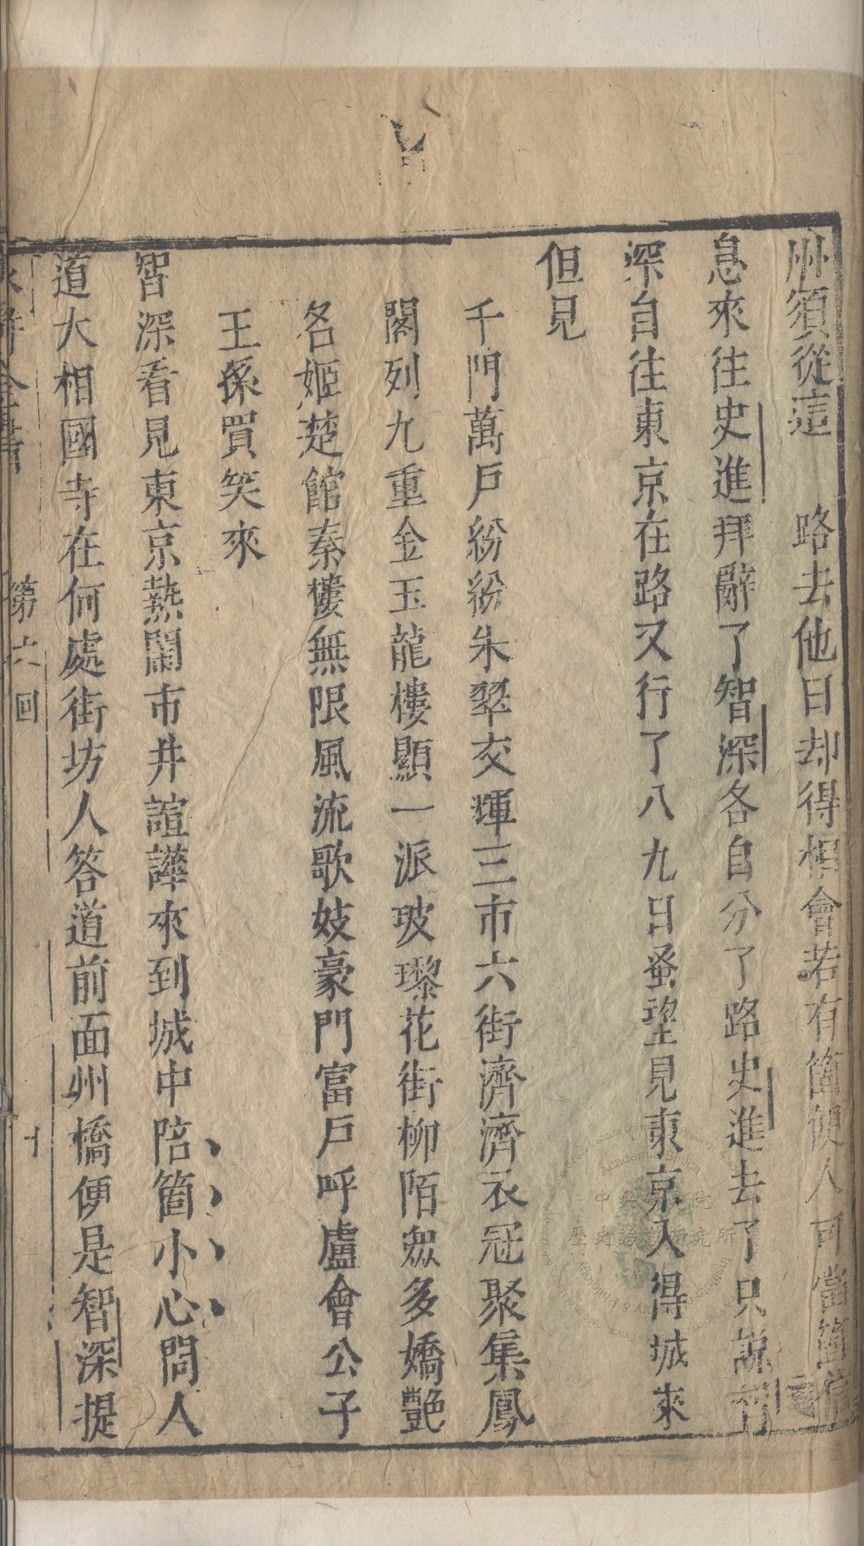 州須從這 路去他日却得相會若有箇便人可當箇信
息來往史進拜辭了智深各自分了路史進去了只說智
深自往東京在路又行了八九日蚤望見東京入得城來
但見
千門萬戶紛紛朱翠交輝三市六街濟濟衣冠聚集鳳
閣列九重金玉龍樓顯一派玻瓈花街柳陌衆多嬌艶
名姬楚館秦樓無限風流歌妓豪門富戶呼盧會公子
王孫買笑來
智深看見東京熱鬧市井諠譁來到城中陪箇小心問人
道大相國寺在何處街坊人答道前面州橋便是智深提
水滸全書
第六回
十
中央研究院
歷史語言研究所